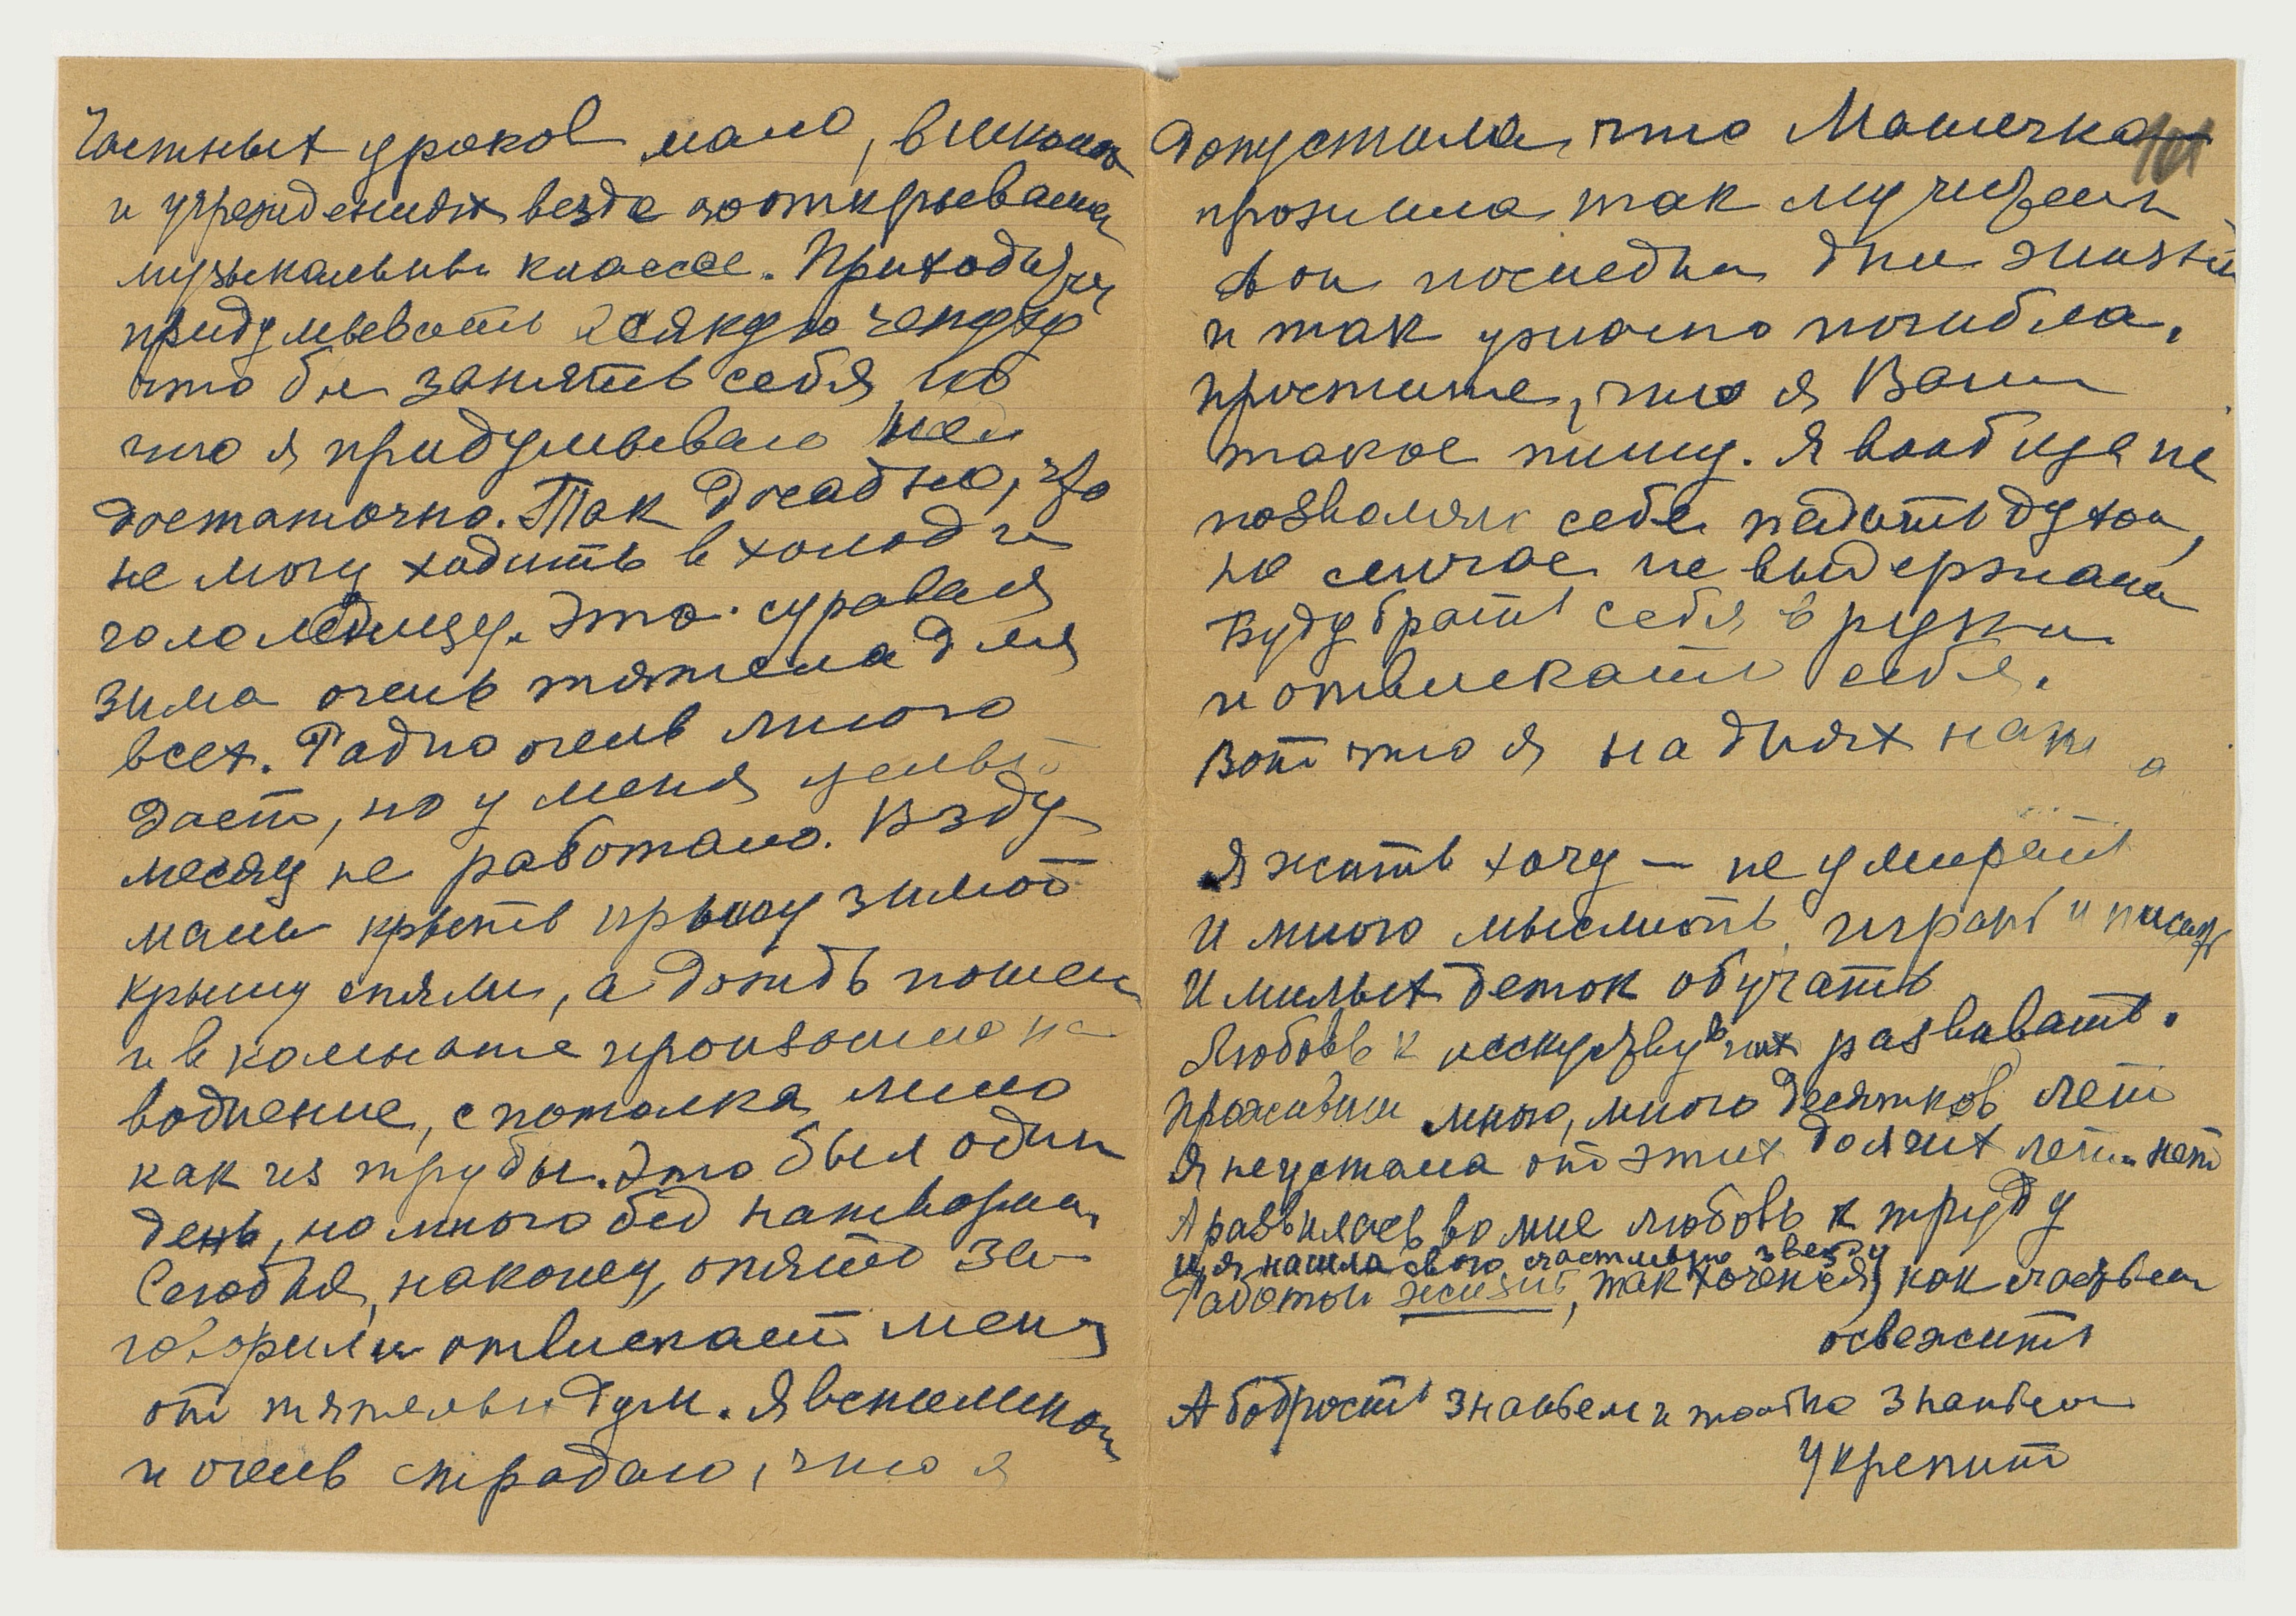 Частных уроков мало, в школах
и учреждениях везде пооткрывали
музыкальные классы. Приходится
придумывать всякую чепуху
что бы занять себя, но
что я придумываю не
достаточно. Так досадно, что
не могу ходить в холод и
гололедицу. Эта суровая
зима очень тяжела для
всех. Радио очень много
дает, но у меня целый
месяц не работало. Взду
мали крыть крышу зимой
крышу сняли, а дождь пошел
и в комнате произошло на
воднение, с потолка лило
как из трубы. Это был один
день, но много бед натворил.
Сегодня, наконец, опять за
говорил и отвлекает меня
от тяжелых дум. Я вспоминаю
и очень страдаю, что я
допустила, что Машечка
101
прожила так мучения
свои последни дни жизни
и так ужасно погибла.
Простите, что я Вам
такое пишу. Я вообще не
позволяю себе падать духом,
но сейчас не выдержала
Буду брать себя в руки
и отвлекать себя.
Вот что я на днях нап а
Я жить хочу — не умирать
И много мыслить, играть и писать
И милых деток обучать
Любовь к исскуству в них развивать.
Проживши много, много десятков лет
Я не устала от этих долгих лет. нет
А развилась во мне любовь к труду
и я нашла свою счастливую звезду
Работой жизнь, так хочется, как счастьем
освежить
А бодрость знаньем и только знаньем
Укрепить